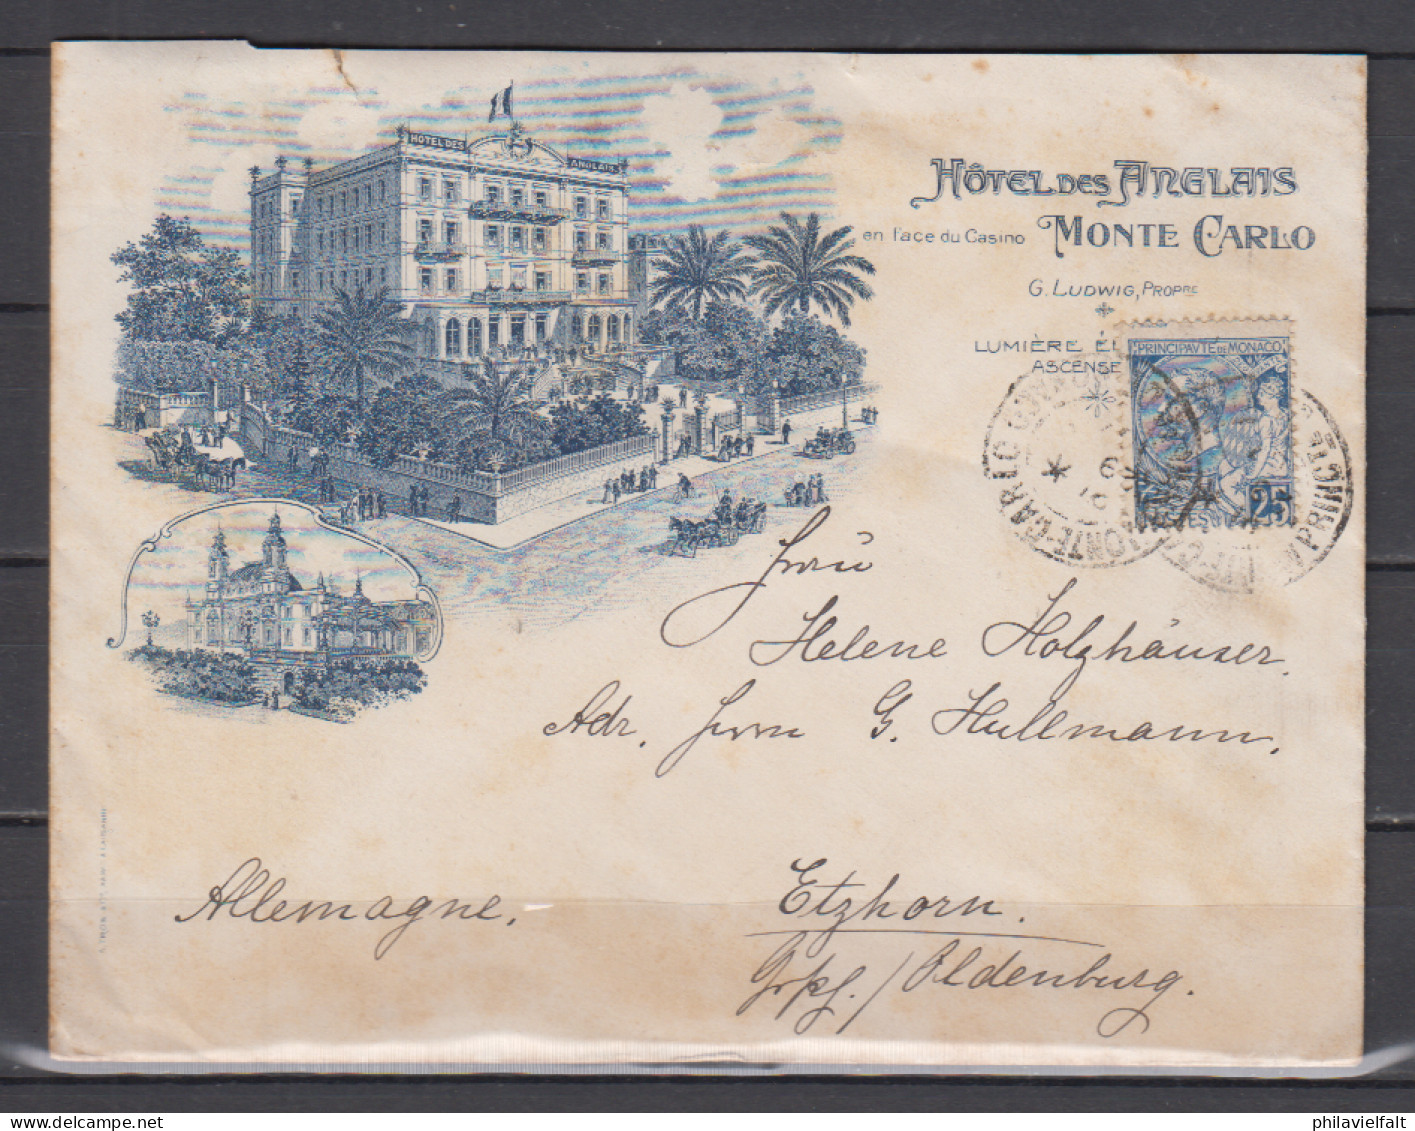 HÔTEL DES ANGLAIS
HÔTEL DES ANGLAIS
en face du Casino MONTE CARLO
G. LUDWIG, PROPRE
LUMIÈRE ÉL
ASCENSE
PRINCIPAUTÉ DE MONACO
25
MONTE-CARLO
Frau
Helene Holzhäuser,
Adr. Herrn G. Hullmann,
Allemagne,
Etzhorn.
Grpf./Oldenburg.
philavielfalt